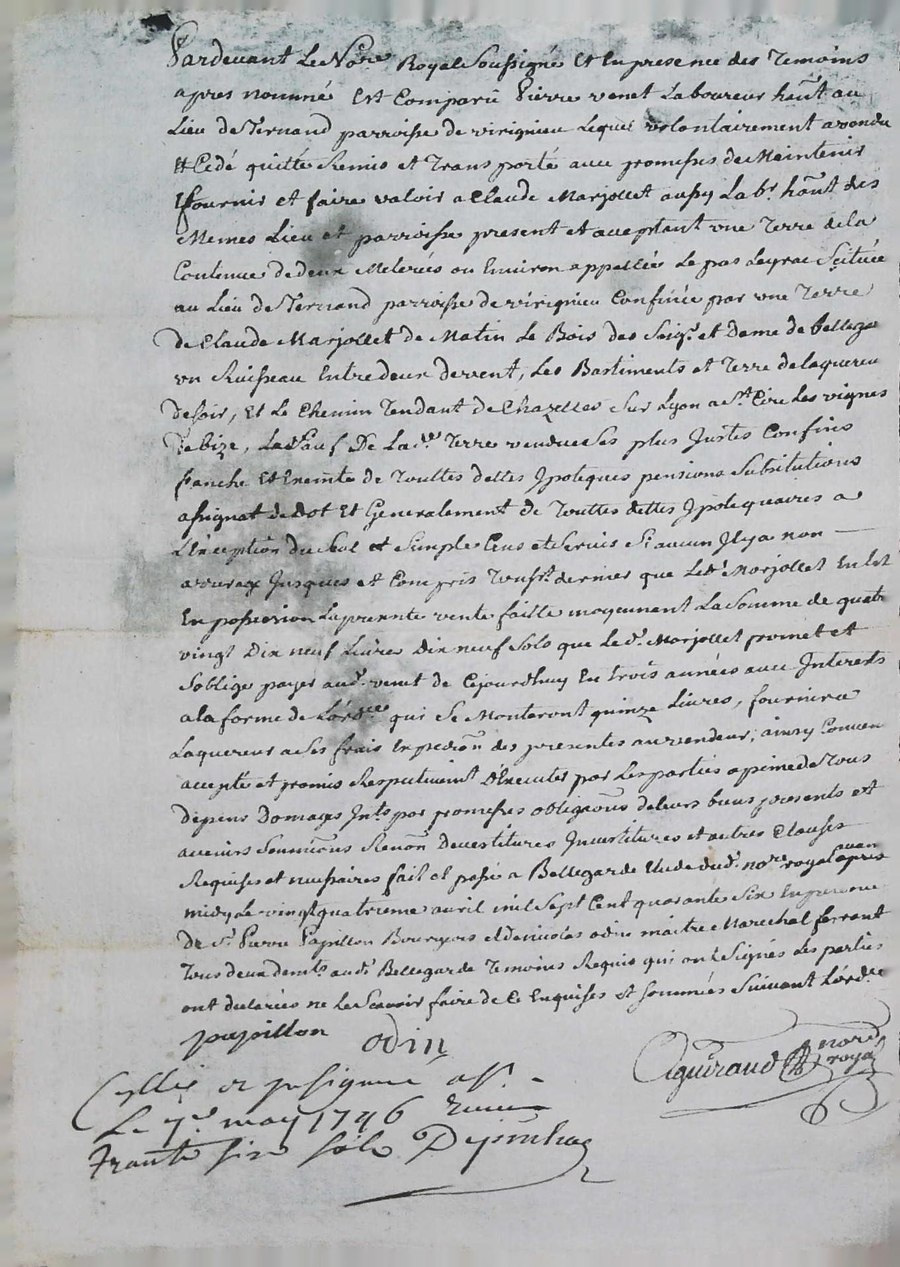 Pardevant Le No.re Royal Soussigné Et En presence des Temoins
apres nommé Est Comparû Pierre venet Laboureur hânt au
Lieu de Ternand parroisse de virignieu Lequel volontairement a vendu
Cedé quitté Remis et Transporté avec promesses de Meintenir
fournir et faire valoir a Claude Marjollet aussy Lab.r hânt des
Memes Lieu et parroisse present et acceptant une Terre de la
Contenue de deux Meterées ou Environ appellée Le pas Leyrac Scituée
au Lieu de Ternand parroisse de virignieu Confinée par une Terre
de Claude Marjollet de Matin Le Bois des Seig.r et Dame de bellega
un Ruisseau Entre deux de vent, Les Bastiments et Terre de laquereu
de soir, Et Le Chemin Tendant de Chazelles Sur Lyon a S.t Cire Les vignes
de bize, Sauf De Lad.e Terre vendue Ses plus Justes Confins
franche Et Exemte de Touttes dettes Ypoteques pensions Substitutions
assignat de dot Et Generalement de Touttes dettes Ypotequaires a
L'Exception du Seul et Simple Cens et Servis Si aucun Il y a non
areurax Jusques et Compris dernier que Led.t Marjollet En Est
En possession La presente vente faitte moyennant La Somme de quatr
vingt Dix neuf Livres Dix neuf Sols que Le d.t Marjollet promet et
Soblige payer aud.t venet de Cejourdhuy En trois années avec Interests
a la forme de Lord.ce qui Se Monteront quinze Livres, fournira
Laquereur a Ses frais Expedion des presentes au vendeur, ainsy Conven
accepté et promis Respectivemt D'Executer par Les parties a peine de Tous
depens Domages Ints par promesses obligaons de leurs biens presents et
avenirs Soumions Renon Devestitures Investitures et autres Clauses
Requises et necessaires fait et passé a Bellegarde Etude dud.t no.re royal avan
apres
midy Le vingtquatrieme avril mil Sept Cent quarante Six En presence
de S.r Pierre Papillon Bourgeois et de nicolas odin maitre Marechal ferrant
Tous deux demts aud.t Bellegarde Temoins Requis qui ont Signés Les parties
ont declarées ne Le Scavoir faire de Ce Enquises et Sommées Suivant Lord.ce
papillon
odin
Aguiraud nore
royal
Le 7.e may 1746
Trante six sols